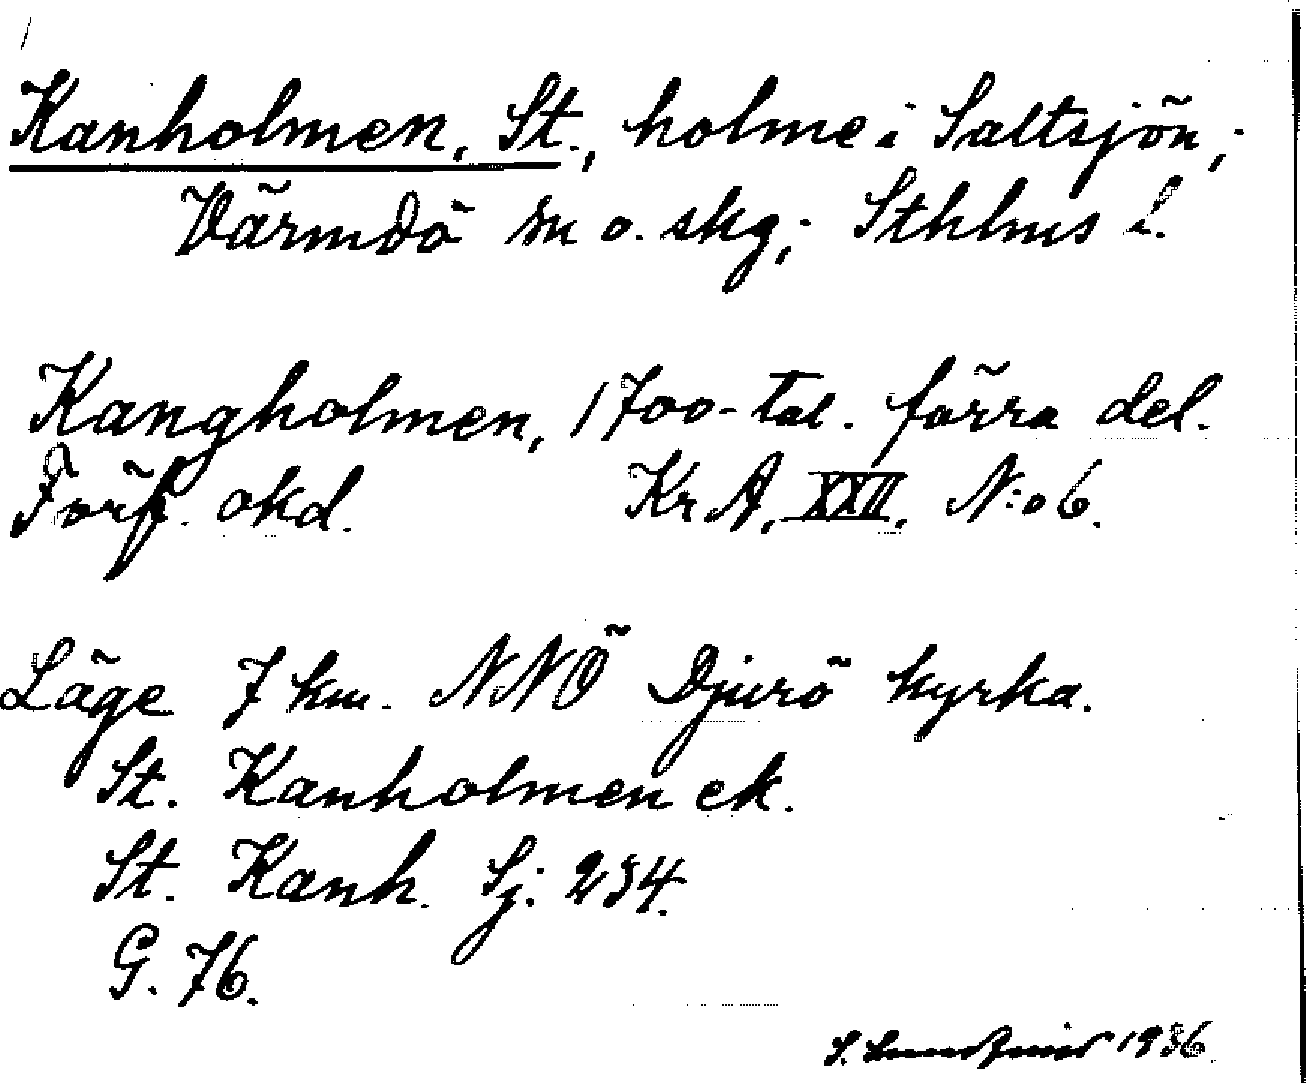 Kanholmen, St., holme i Saltsjön,
Värmdö sn o. skg; Sthlms l.
Kangholmen, 1700-tal. förra del.
Förf. okd. Kr A, XXII, N:o 6.
Läge 7 km. NNÖ Djurö kyrka.
St. Kanholmen ek.
St. Kanh. Sj. 234.
G. 76.
S. 1936.